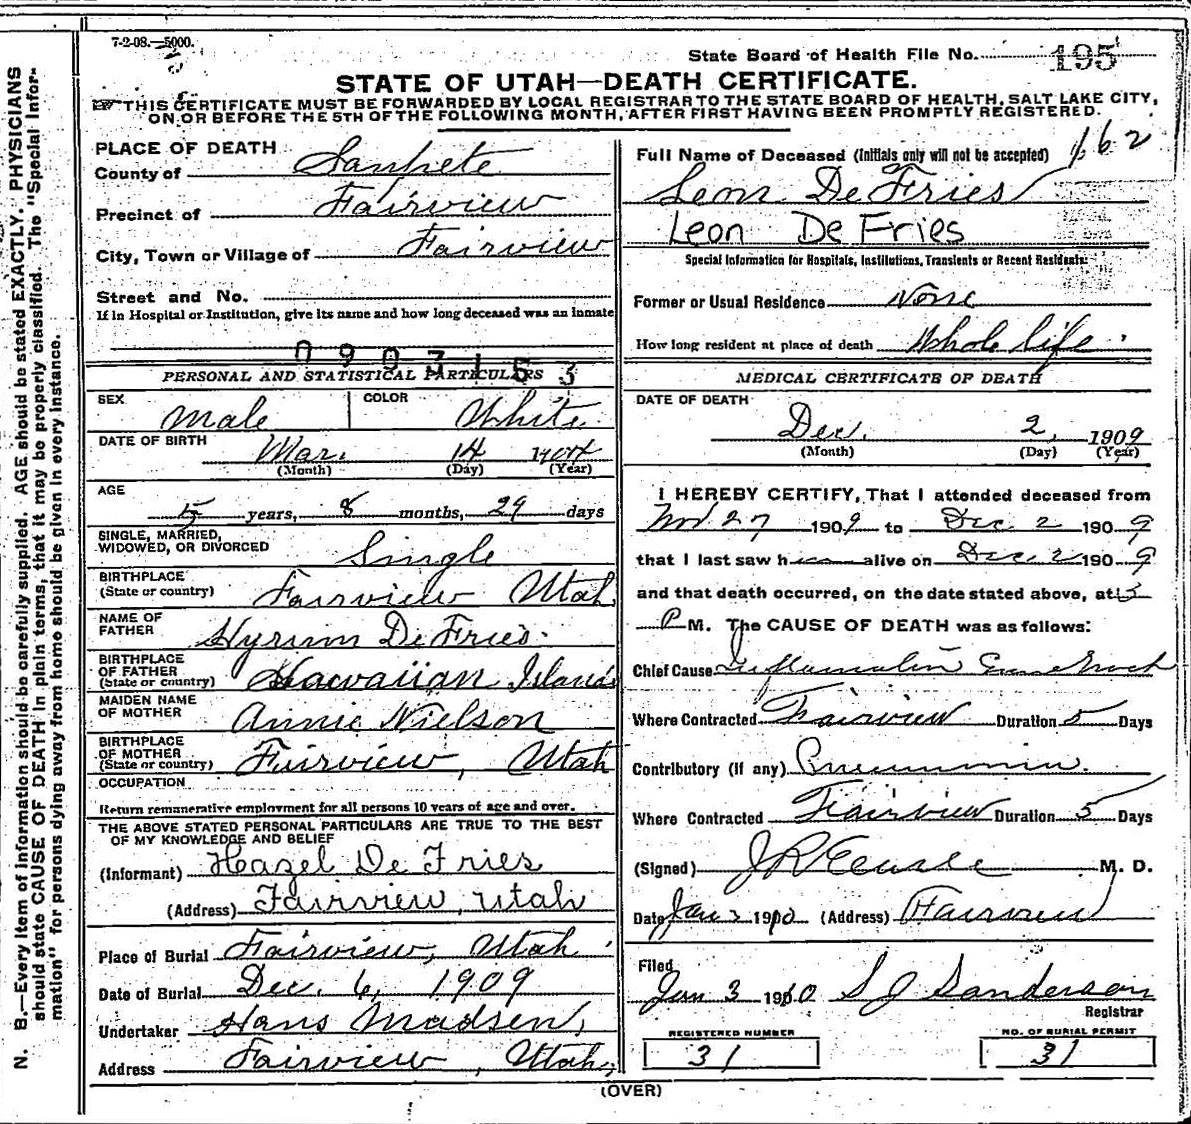 7-2-08.—5000.
State Board of Health File No. 195
STATE OF UTAH—DEATH CERTIFICATE.
THIS CERTIFICATE MUST BE FORWARDED BY LOCAL REGISTRAR TO THE STATE BOARD OF HEALTH, SALT LAKE CITY,
ON OR BEFORE THE 5TH OF THE FOLLOWING MONTH, AFTER FIRST HAVING BEEN PROMPTLY REGISTERED.
PLACE OF DEATH
County of Sanpete
Precinct of Fairview
City, Town or Village of Fairview
Street and No.
If in Hospital or Institution, give its name and how long deceased was an inmate
0907153
PERSONAL AND STATISTICAL PARTICULARS
SEX Male COLOR White
DATE OF BIRTH Mar. 14 1904
(Month) (Day) (Year)
AGE
5 years, 8 months, 29 days
SINGLE, MARRIED,
WIDOWED, OR DIVORCED Single
BIRTHPLACE
(State or country) Fairview Utah
NAME OF
FATHER Hyrum De Fries.
BIRTHPLACE
OF FATHER
(State or country) Hawaiian Islands
MAIDEN NAME
OF MOTHER Annie Nielson
BIRTHPLACE
OF MOTHER
(State or country) Fairview, Utah
OCCUPATION
Return remunerative employment for all persons 10 years of age and over.
THE ABOVE STATED PERSONAL PARTICULARS ARE TRUE TO THE BEST
OF MY KNOWLEDGE AND BELIEF
(Informant) Hazel De Fries
(Address) Fairview, Utah
Place of Burial Fairview, Utah
Date of Burial Dec. 6, 1909
Undertaker Hans Madsen,
Address Fairview, Utah,
162
Full Name of Deceased (Initials only will not be accepted)
Leon De Fries
Leon De Fries
Special Information for Hospitals, Institutions, Transients or Recent Residents:
Former or Usual Residence None
How long resident at place of death Whole life
MEDICAL CERTIFICATE OF DEATH
DATE OF DEATH
Dec. 2, 1909
(Month) (Day) (Year)
I HEREBY CERTIFY, That I attended deceased from
Nov 27 1909 to Dec 2 1909
that I last saw h alive on Dec 2 1909
and that death occurred, on the date stated above, at
P M. The CAUSE OF DEATH was as follows:
Chief Cause
Where Contracted Fairview Duration 5 Days
Contributory (if any) Pneumonia.
Where Contracted Fairview Duration 5 Days
(Signed) M. D.
Date Jan 3 1910 (Address) Fairview
Filed
Jan 3 1910 S J Sanderson
Registrar
REGISTERED NUMBER NO. OF BURIAL PERMIT
31 31
(OVER)
N. B.—Every item of information should be carefully supplied. AGE should be stated EXACTLY. PHYSICIANS
should state CAUSE OF DEATH in plain terms, that it may be properly classified. The "Special Infor-
mation" for persons dying away from home should be given in every instance.